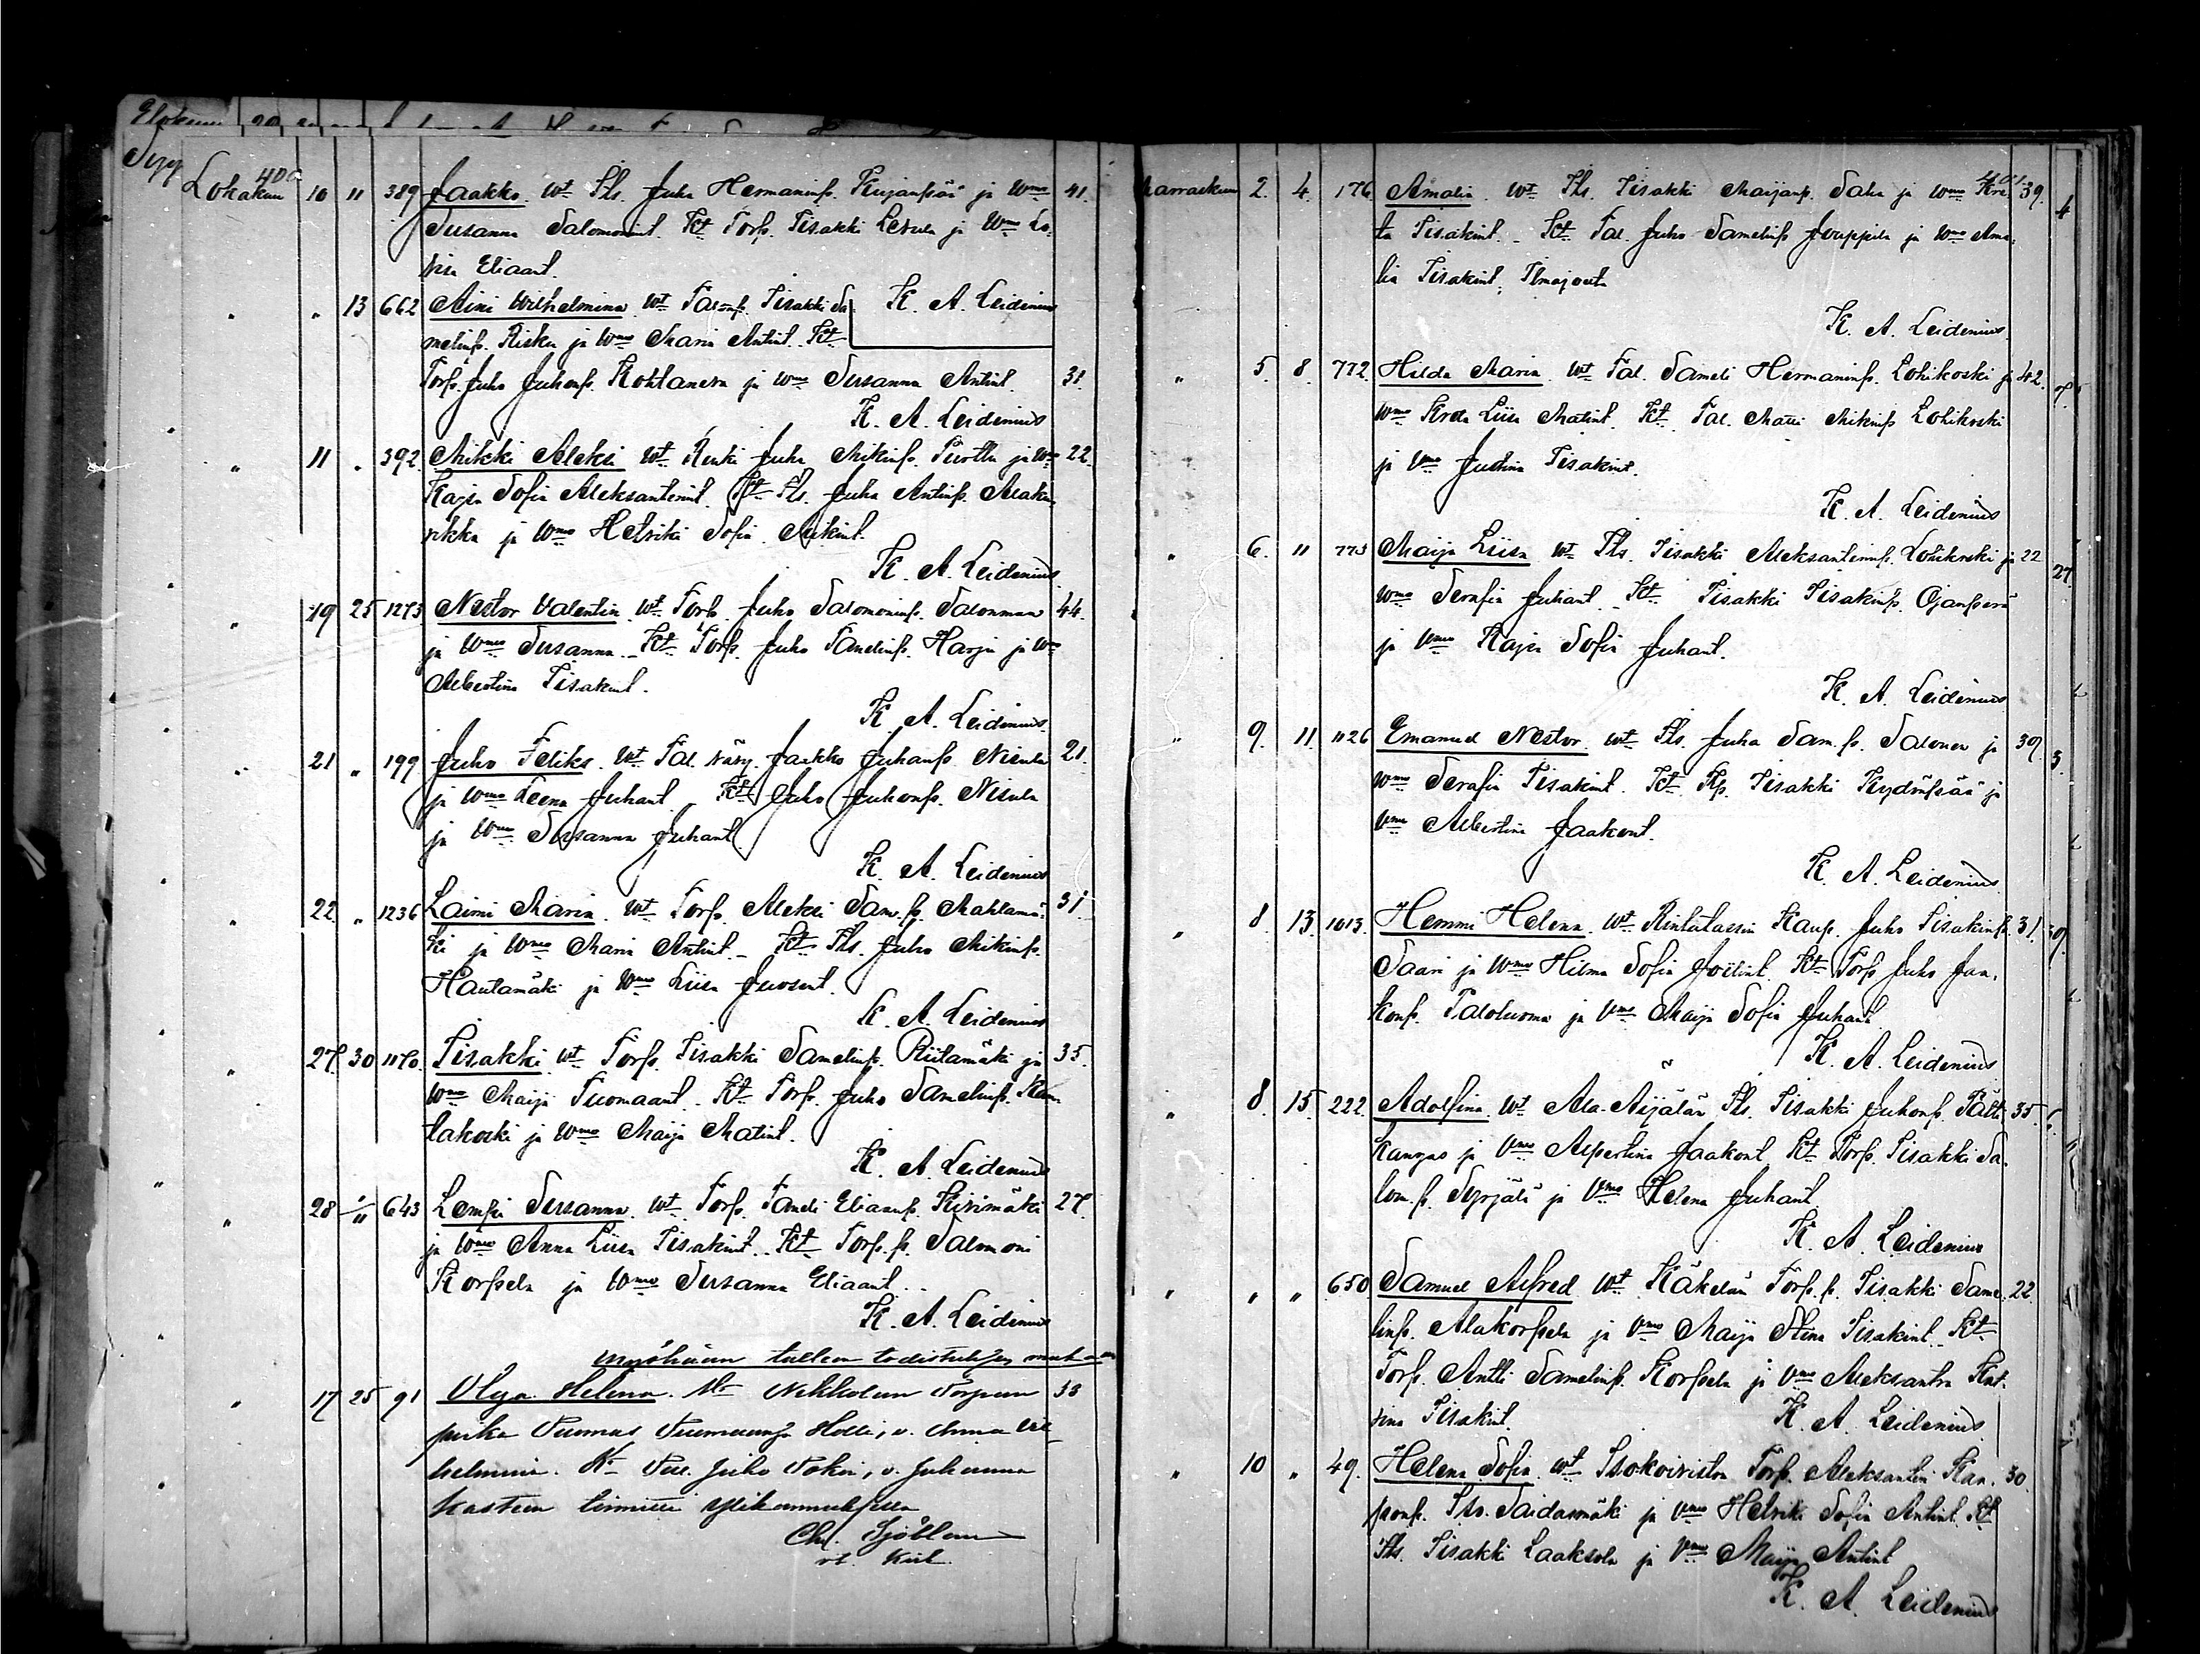 Elokuun
Syy
400
Lokakuu 10 11 389 Jaakko. wt Itls. Juha Hermaninp. Kujanpää ja Wmo 41.
Susanna Salomonint. Kt Torp. Iisakki Levula ja Wmo Lo
visa Eliaant.
" " 13 662 Aini Wilhelmina wt Talonp. Iisakki Sa K. A. Leidenius
melinp. Risku ja Wmo Maria Antint. Kt
Torp. Juho Juhonp. Kohlanen ja Wmo Susanna Antint. 31.
K. A. Leidenius
" 11 " 392 Mikki Aleksi wt Renki Juha Mikinp. Turtta ja Wmo 22.
Kajsa Sofia Aleksanterint. Kt Itls. Juha Antinp. Alaku
rikka ja Wmo Helviki Sofia Mikint.
K. A. Leidenius
" 19 25 1273 Nestor Valentin wt Torp. Juho Salomoninp. Salonmaa 44.
ja Wmo Susanna. Kt Torp. Juho Tanelinp. Harju ja Wmo
Albertina Iisakint.
K. A. Leidenius
" 21 " 199 Juho Feliks. wt Tal. Jaakko Juhanp. Nisula 21.
ja Wmo Leena Juhant. Kt Juho Juhonp. Nisula
ja Wmo Susanna Juhant.
K. A. Leidenius
" 22 " 1236 Laimi Maria. wt Torp. Aleksi Sam.p. Mahlamä- 31.
ki ja Wmo Maria Antint. Kt Itls. Juho Mikinp.
Hautamäki ja Wmo Liisa Juosent.
K. A. Leidenius
" 27 30 1170 Iisakki. wt Torp. Iisakki Samelinp. Riitamäki ja 35.
Wmo Maija Tuomaant. Kt Torp. Juho Samelinp.
lakoski ja Wmo Maija Matint.
K. A. Leidenius
" 28 1/11 643 Lempi Susanna. wt Torp. Taneli Eliaanp. Kirimäki 27.
ja Wmo Anna Liisa Iisakint. Kt Torp.p. Salomoni
Korpela ja Wmo Susanna Eliaant.
K. A. Leidenius
myöhään tulleen todistuksen mukaan
" 17 25 91 Olga Helena. Nikkolan Torpan 33
poika Tuomas Tuomaanp. Holli, v. Anna Vil
helmina. Kt Tal. Juho, v. Juhanna
Kasteen toimitti Ylikannuksessa
Chr. Sjöblom
vt. Kirk.
401
Marraskuu 2. 4. 176 Amalia. wt Itls. Iisakki Maijanp. Saha ja Wmo Kre 39.
ta Iisakint. Kt Tal. Juho Samelinp. Jouppila ja Wmo Ama
lia Iisakint, Ilmajoelta
K. A. Leidenius.
" 5. 8. 772. Hilda Maria. wt Tal. Sameli Hermaninp. Lohikoski ja 42.
Wmo Kreta Liisa Matint. Kt Tal. Matti Mikinp. Lohikoski
ja Vmo Justina Iisakint.
K. A. Leidenius
" 6. 11 773 Maija Liisa wt Itls. Iisakki Aleksanterinp. Lohikoski ja 22
Wmo Serafia Juhant. Kt Iisakki Iisakinp. Ojanperä
ja Vmo Kajsa Sofia Juhant.
K. A. Leidenius
" 9. 11. 1126 Emanuel Nestor. wt Itls. Juha Sam.p. Salonen ja 39.
Wmo Serafia Iisakint. Kt Iisakki Kydönpää ja
Vmo Albertina Jaakont.
K. A. Leidenius
" 8. 13. 1013. Hemmi Helena. wt Rintatassin Kaup. Juho Iisakinp. 31.
Saari ja Wmo Hilma Sofia Joelint. Kt Torp. Juho Jaa-
konp. Taloluoma ja Vmo Maija Sofia Juhant.
K. A. Leidenius
" 8. 15. 222. Adolfina. wt Ala-Äijälän Itls. Iisakki Juhonp. Pält- 35.
kangas ja Vmo Alpertina Jaakont. Kt Torp. Iisakki Sa-
lom.p. Syrjälä ja Vmo Helena Juhant.
K. A. Leidenius
" " " 650 Samuel Alfred wt Käkelän Torp.p. Iisakki Same- 22.
linp. Alakorpela ja Vmo Maija Stina Iisakint. Kt
Torp. Antti Samelinp. Korpela ja Vmo Aleksantra Kat-
rina Iisakint. K. A. Leidenius
" 10 " 49. Helena Sofia. wt Isokoiviston Torp. Aleksanteri Kaa- 30.
ponp. Saidanmäki ja Vmo Helviki Sofia Antint. Kt
Itls. Iisakki Laaksola ja Vmo Maija Antint.
K. A. Leidenius